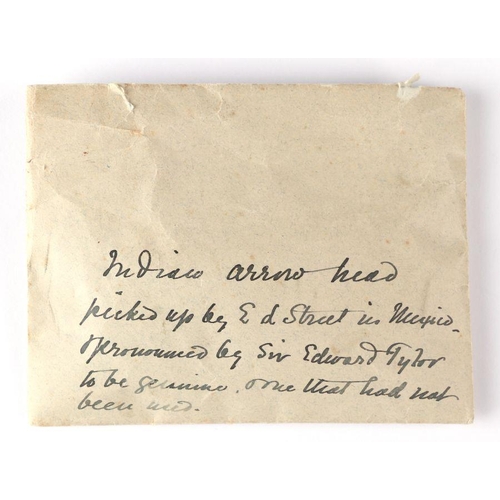 Indian arrow head
picked up by E d Street in Mexico.
& pronounced by Sir Edward Tylor
to be genuine. & one that had not
been used.